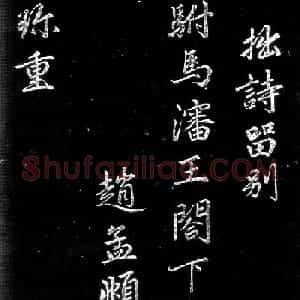 拙詩留別
駙馬瀋王閤下
趙孟頫
珎重
Shufaziliao.COM